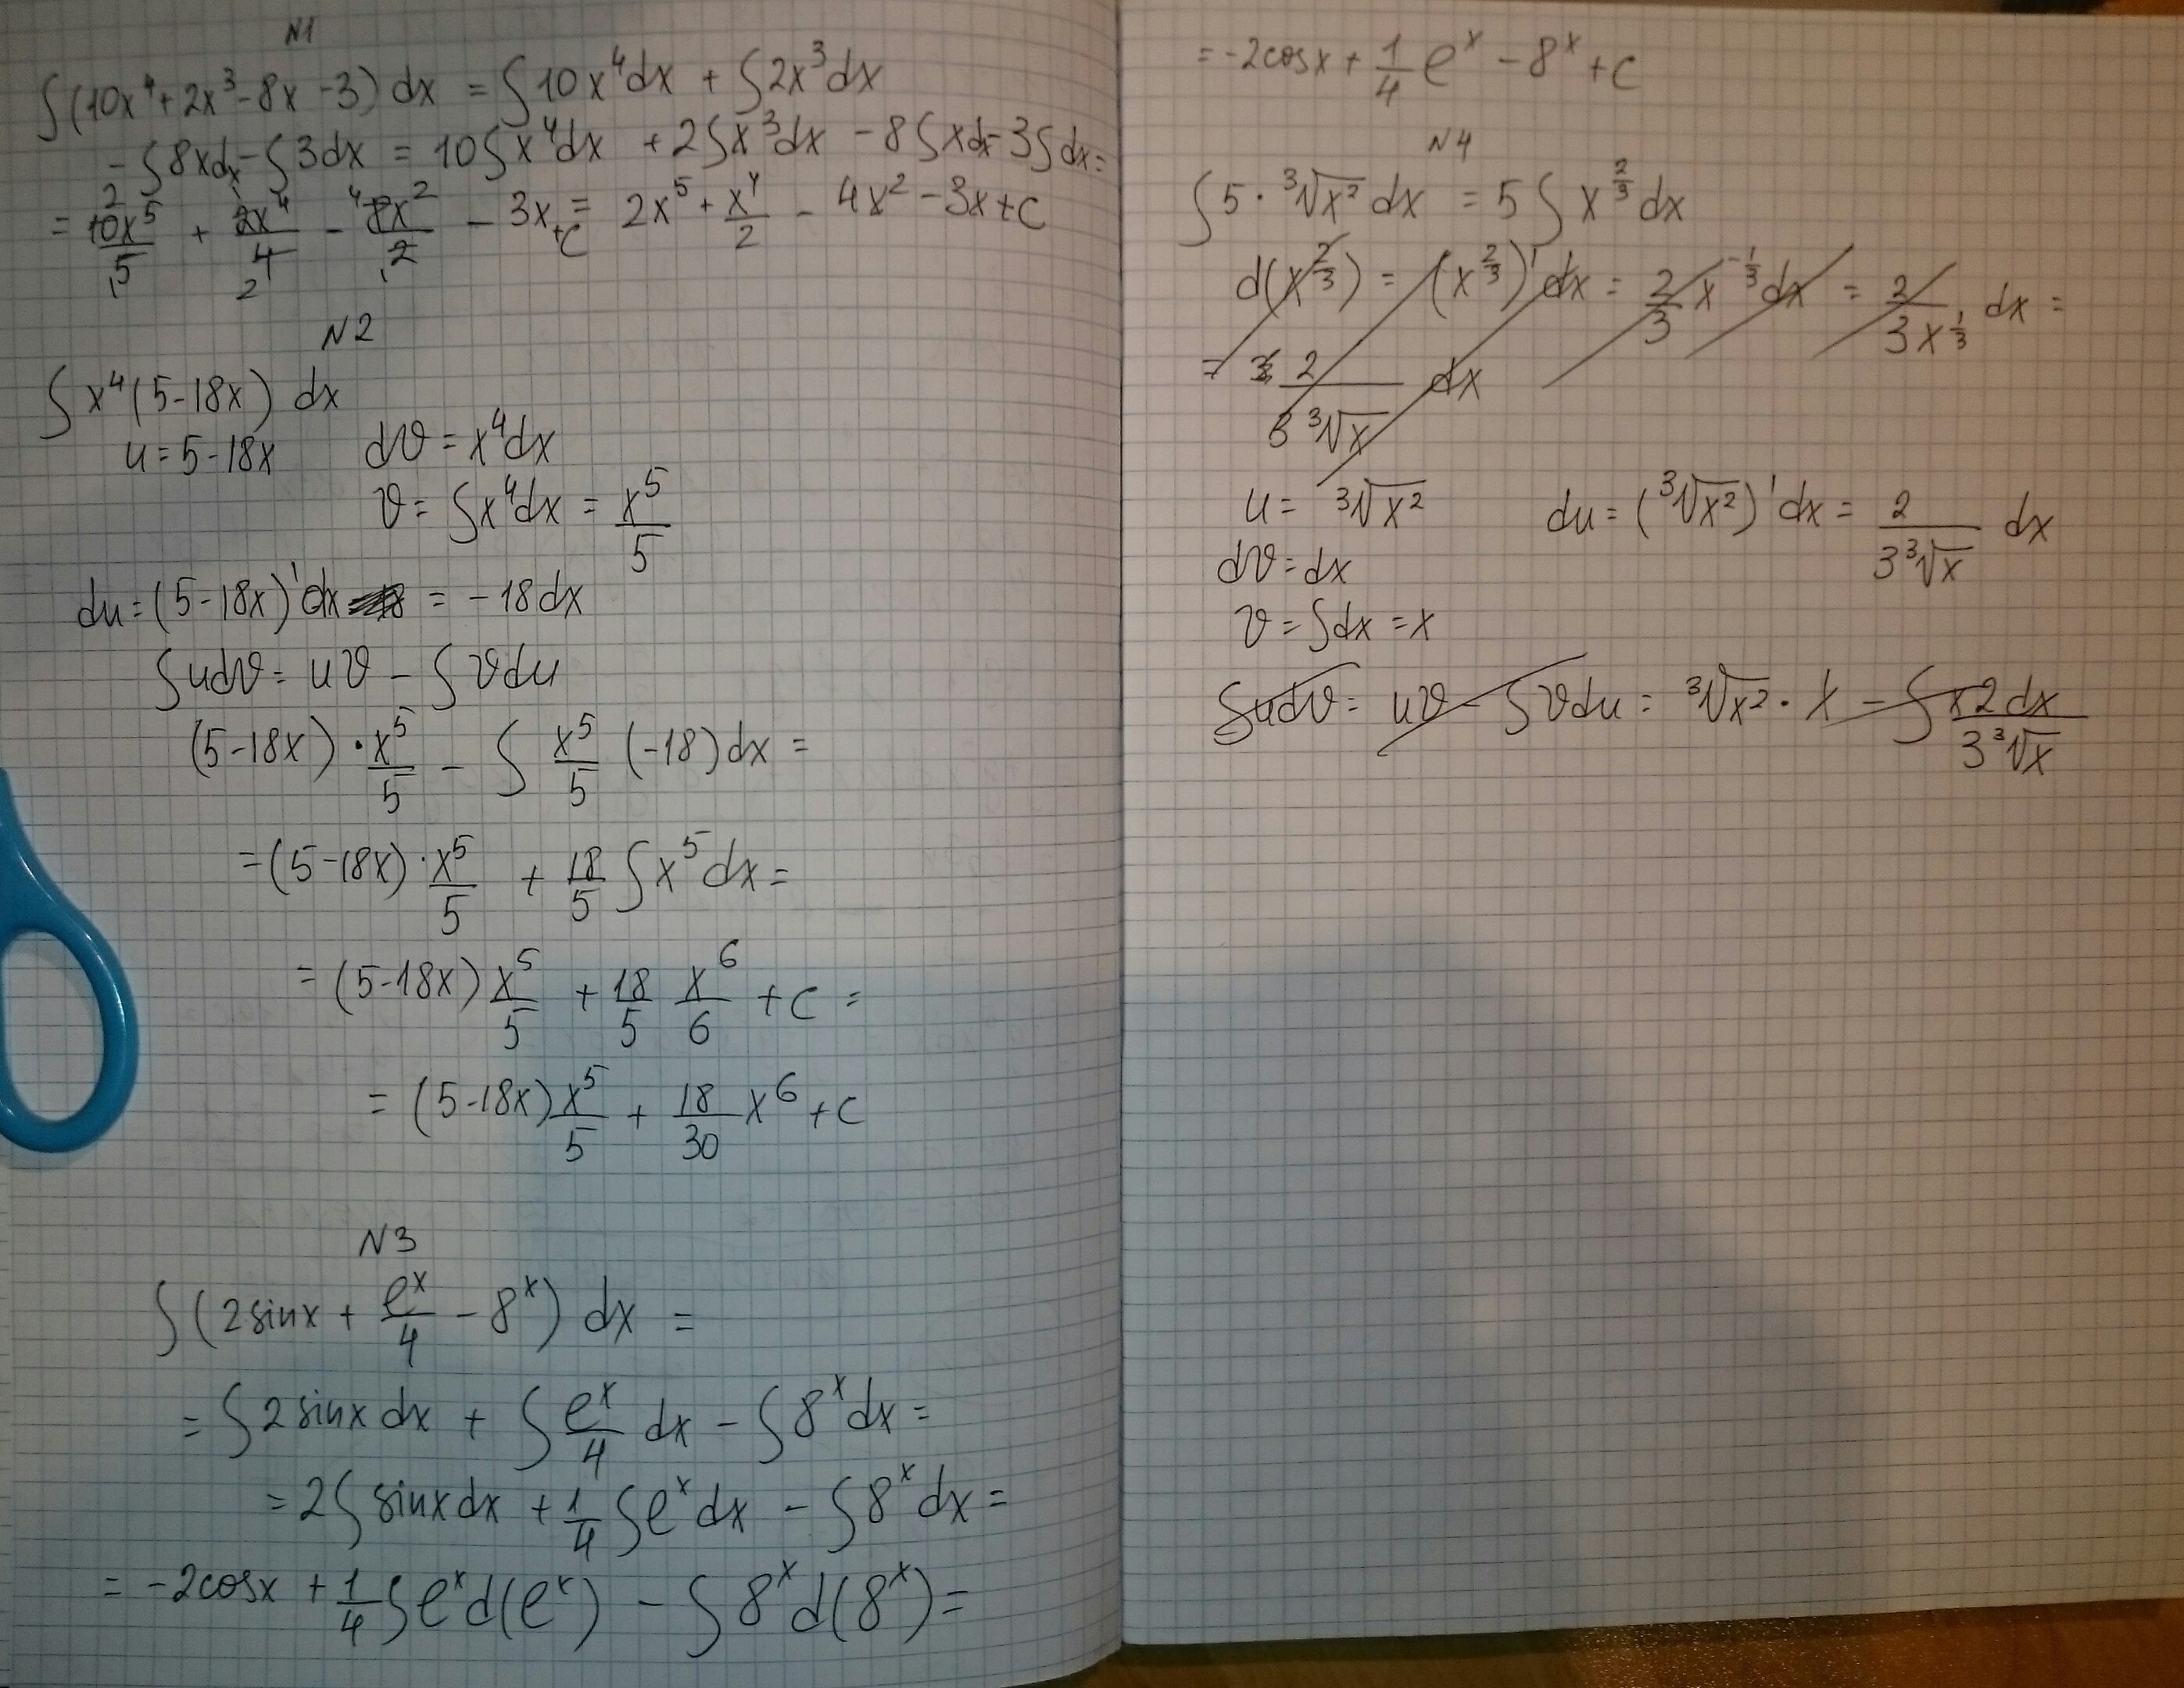 N1
∫(10x⁴+2x³-8x-3) dx = ∫10x⁴dx + ∫2x³dx
-∫8xdx-∫3dx = 10∫x⁴dx +2∫x³dx -8∫xdx-3∫dx=
= 10x⁵/5 + 2x⁴/4 - 8x²/2 - 3x+c = 2x⁵+x⁴/2 - 4x²-3x+c
N2
∫x⁴(5-18x) dx
u=5-18x dv=x⁴dx
v= ∫x⁴dx = x⁵/5
du=(5-18x)'dx = -18dx
∫udv= uv - ∫vdu
(5-18x)·x⁵/5 - ∫ x⁵/5 (-18)dx =
=(5-18x)·x⁵/5 + 18/5 ∫x⁵dx=
=(5-18x)x⁵/5 + 18/5 x⁶/6 +c =
= (5-18x)x⁵/5 + 18/30 x⁶+c
N3
∫(2sinx + eˣ/4 - 8ˣ) dx =
= ∫2sinx dx + ∫eˣ/4 dx - ∫8ˣdx=
=2∫sinxdx +1/4∫eˣdx - ∫8ˣdx=
= -2cosx +1/4∫eˣd(eˣ) - ∫8ˣd(8ˣ)=
=-2cosx+1/4 eˣ -8ˣ+c
N4
∫5·³√x² dx =5∫x^(2/3)dx
d(x^(2/3)) = (x^(2/3))'dx = 2/3 x^(-1/3)dx = 2/(3x^(1/3)) dx =
= 2/(3 ³√x) dx
u= ³√x² du=(³√x²)'dx= 2/(3³√x) dx
dv=dx
v=∫dx=x
∫udv= uv-∫vdu= ³√x²·x - ∫x2dx/(3³√x)